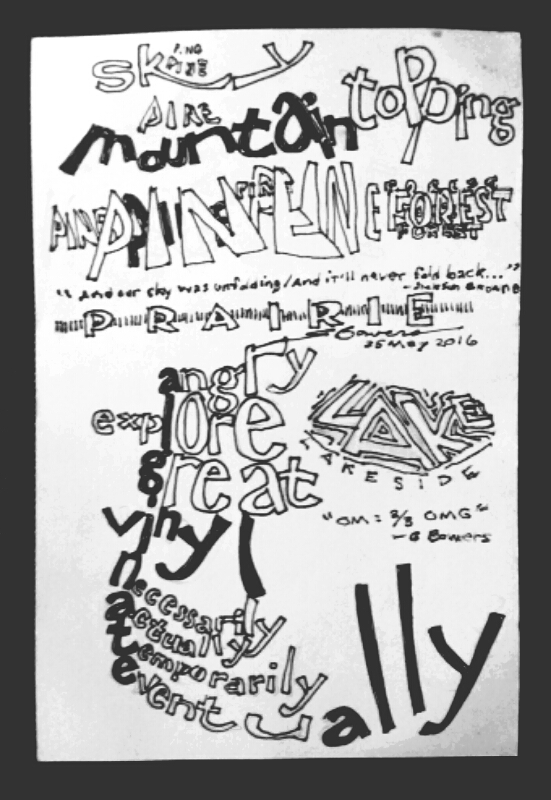 sky
PINE
PINE
PINE
mountain
topping
PINE PINE PINE FOREST
FOREST
"And our sky was unfolding/And it'll never fold back..."
- Jackson Browne
PRAIRIE
G Bowers
25 May 2016
angry
explore
great
viny
necessarily
actually
temporarily
eventually
LAKE
LAKESIDE
"OM = 2/3 OMG"
- G Bowers